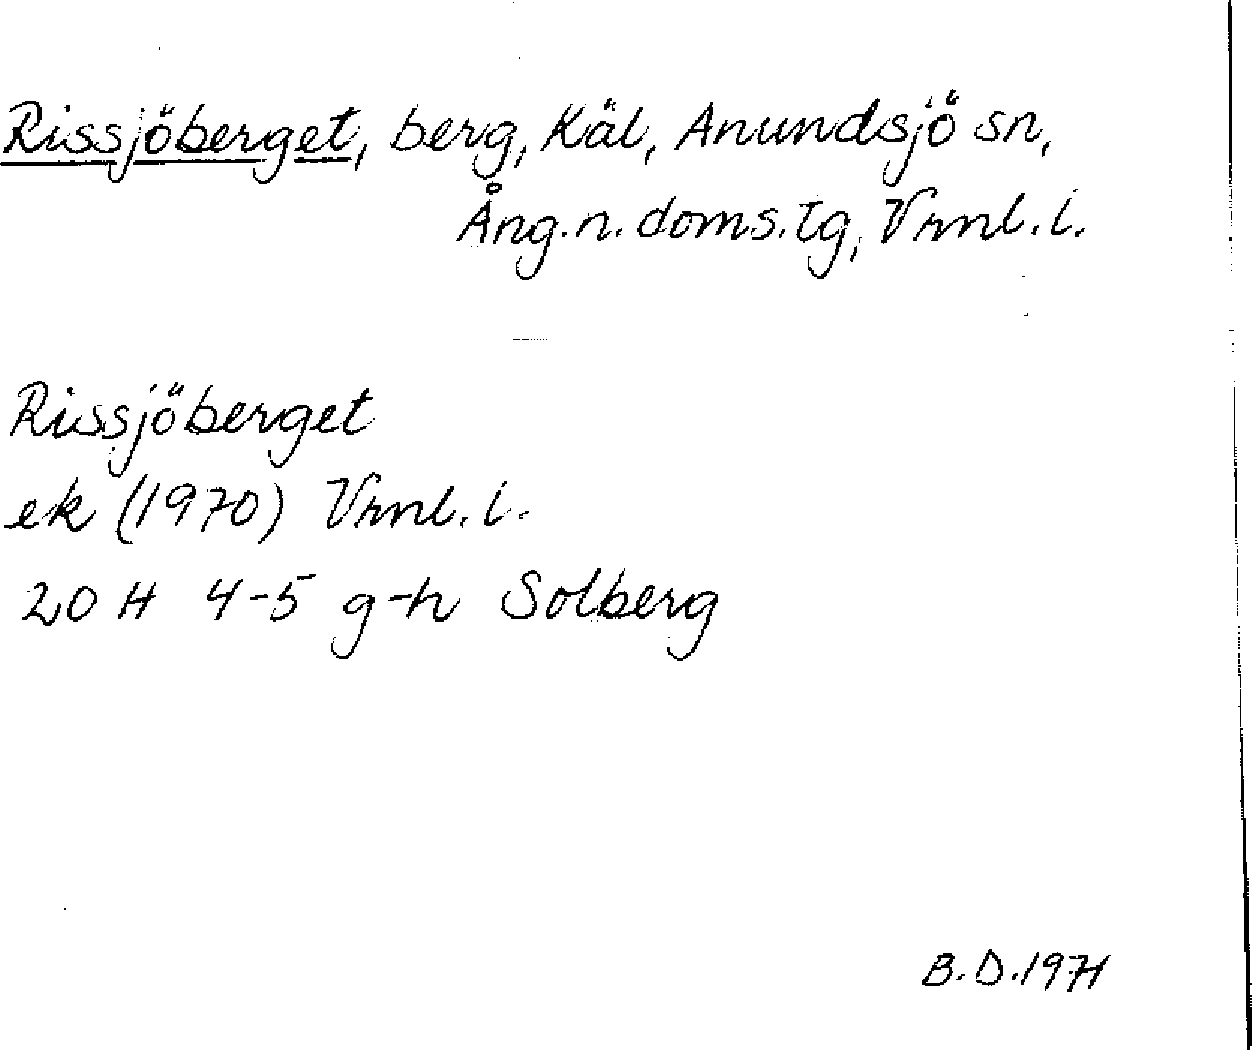 Rissjöberget, berg, Käl, Anundsjö sn,
Ång.n. doms.tg, Vrnl.l.
Rissjöberget
ek (1970) Vrnl.l.
20 H 4-5 g-h Solberg
B.D.1971